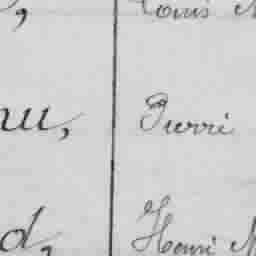 Louis
u, Pierre
d, Henri